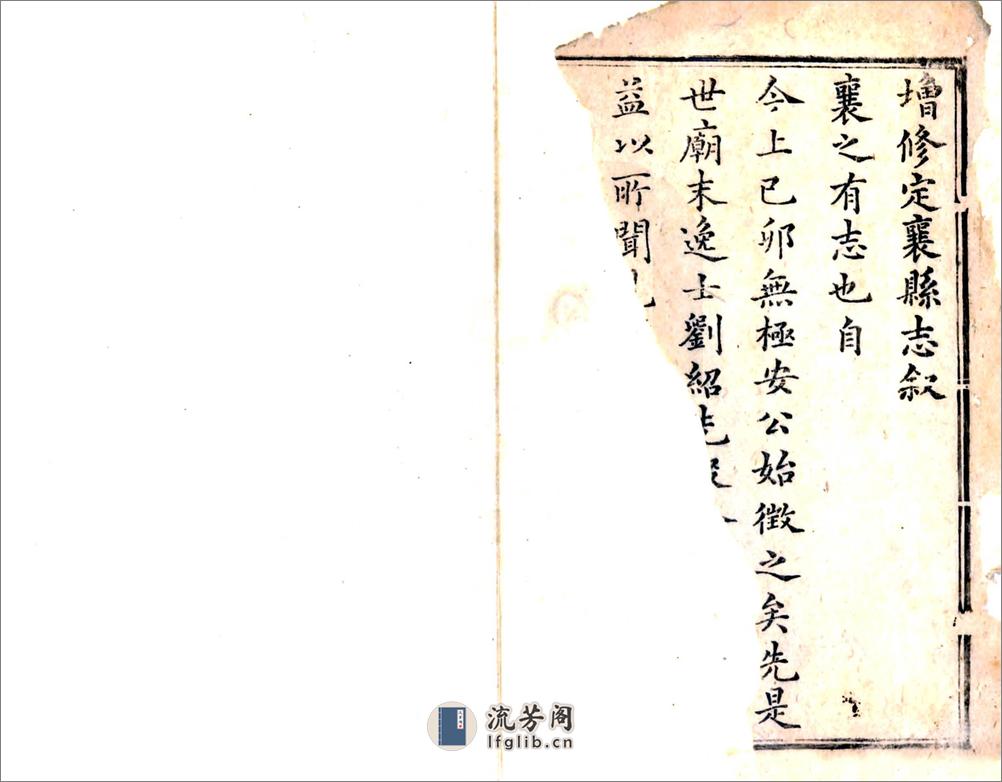 增修定襄縣志叙
襄之有志也自
今上已卯無極安公始徵之矣先是
世廟末逸士劉紹先
益以所聞見
流芳阁
lfglib.cn